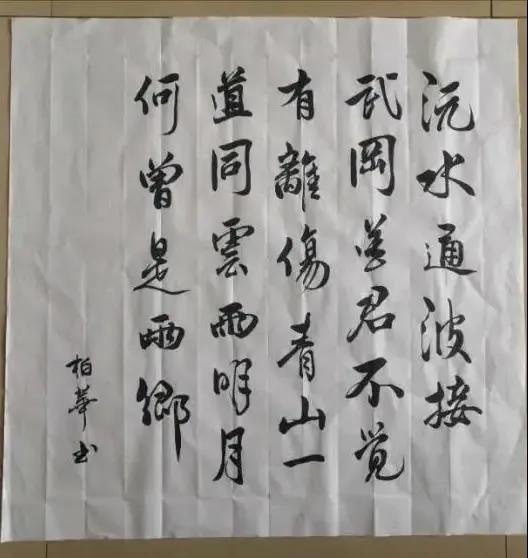 沅水通波接
武岡送君不觉
有離傷青山一
道同雲雨明月
何曾是兩鄉
柏華书